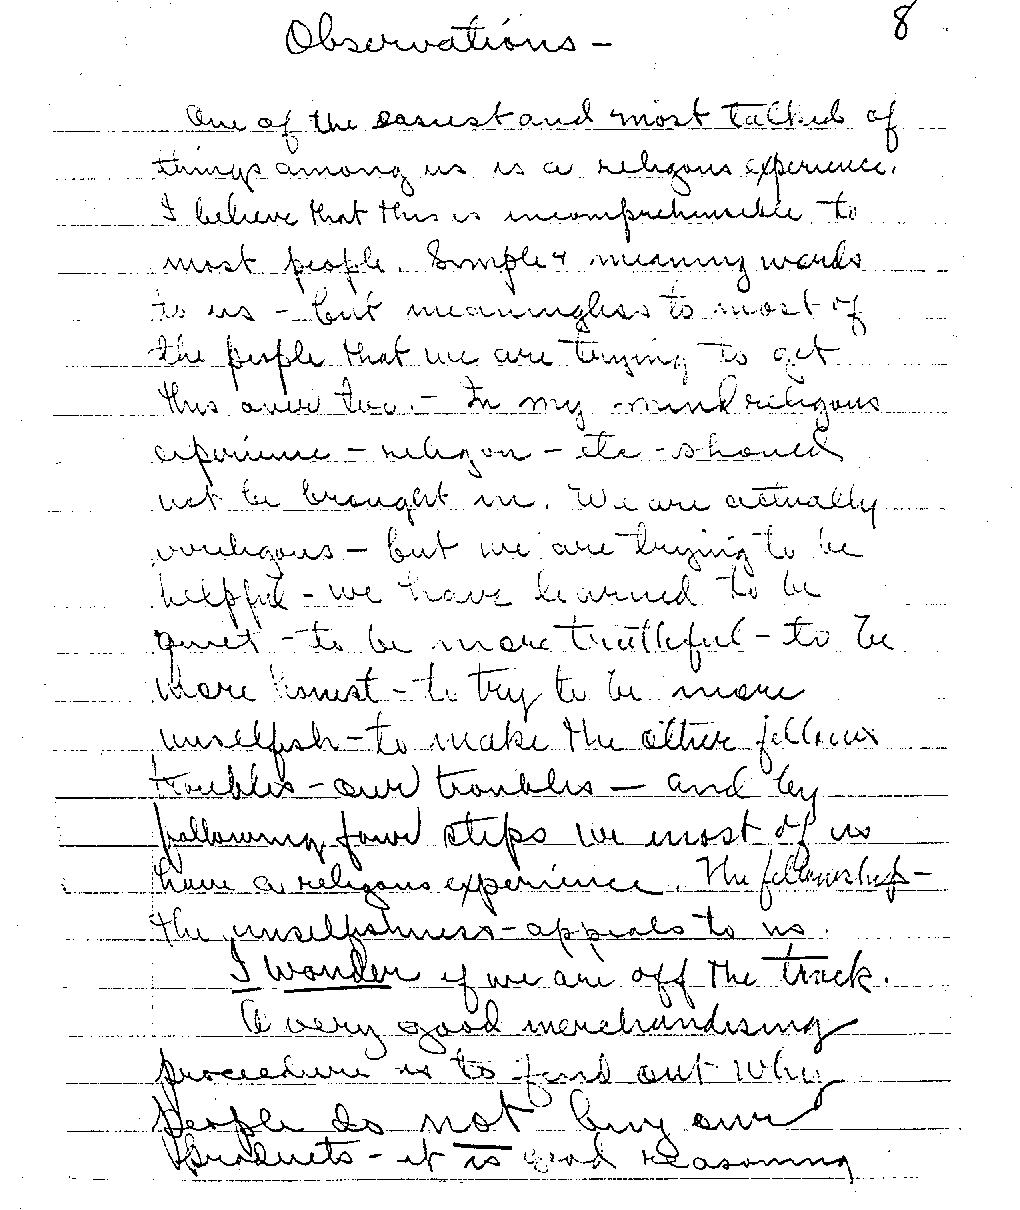 8
Observations –
One of the easiest and most talked of
things among us is a religous experience.
I believe that this is incomprehensible to
most people. Simple & meaning words
to us – but meaningless to most of
the people that we are trying to get
this over too. – In my mind religous
experience – religon – etc – should
not be brought in. We are actually
irreligous – but we are trying to be
helpful – we have learned to be
quiet – to be more truthful – to be
more honest – to try to be more
unselfish – to make the other fellows
troubles – our troubles – and by
following four steps we most of us
have a religous experience. The fellowship –
the unselfishness – appeals to us.
I wonder if we are off the track.
A very good merchandising
procedure is to find out why
people do not buy our
products – it is good reasoning